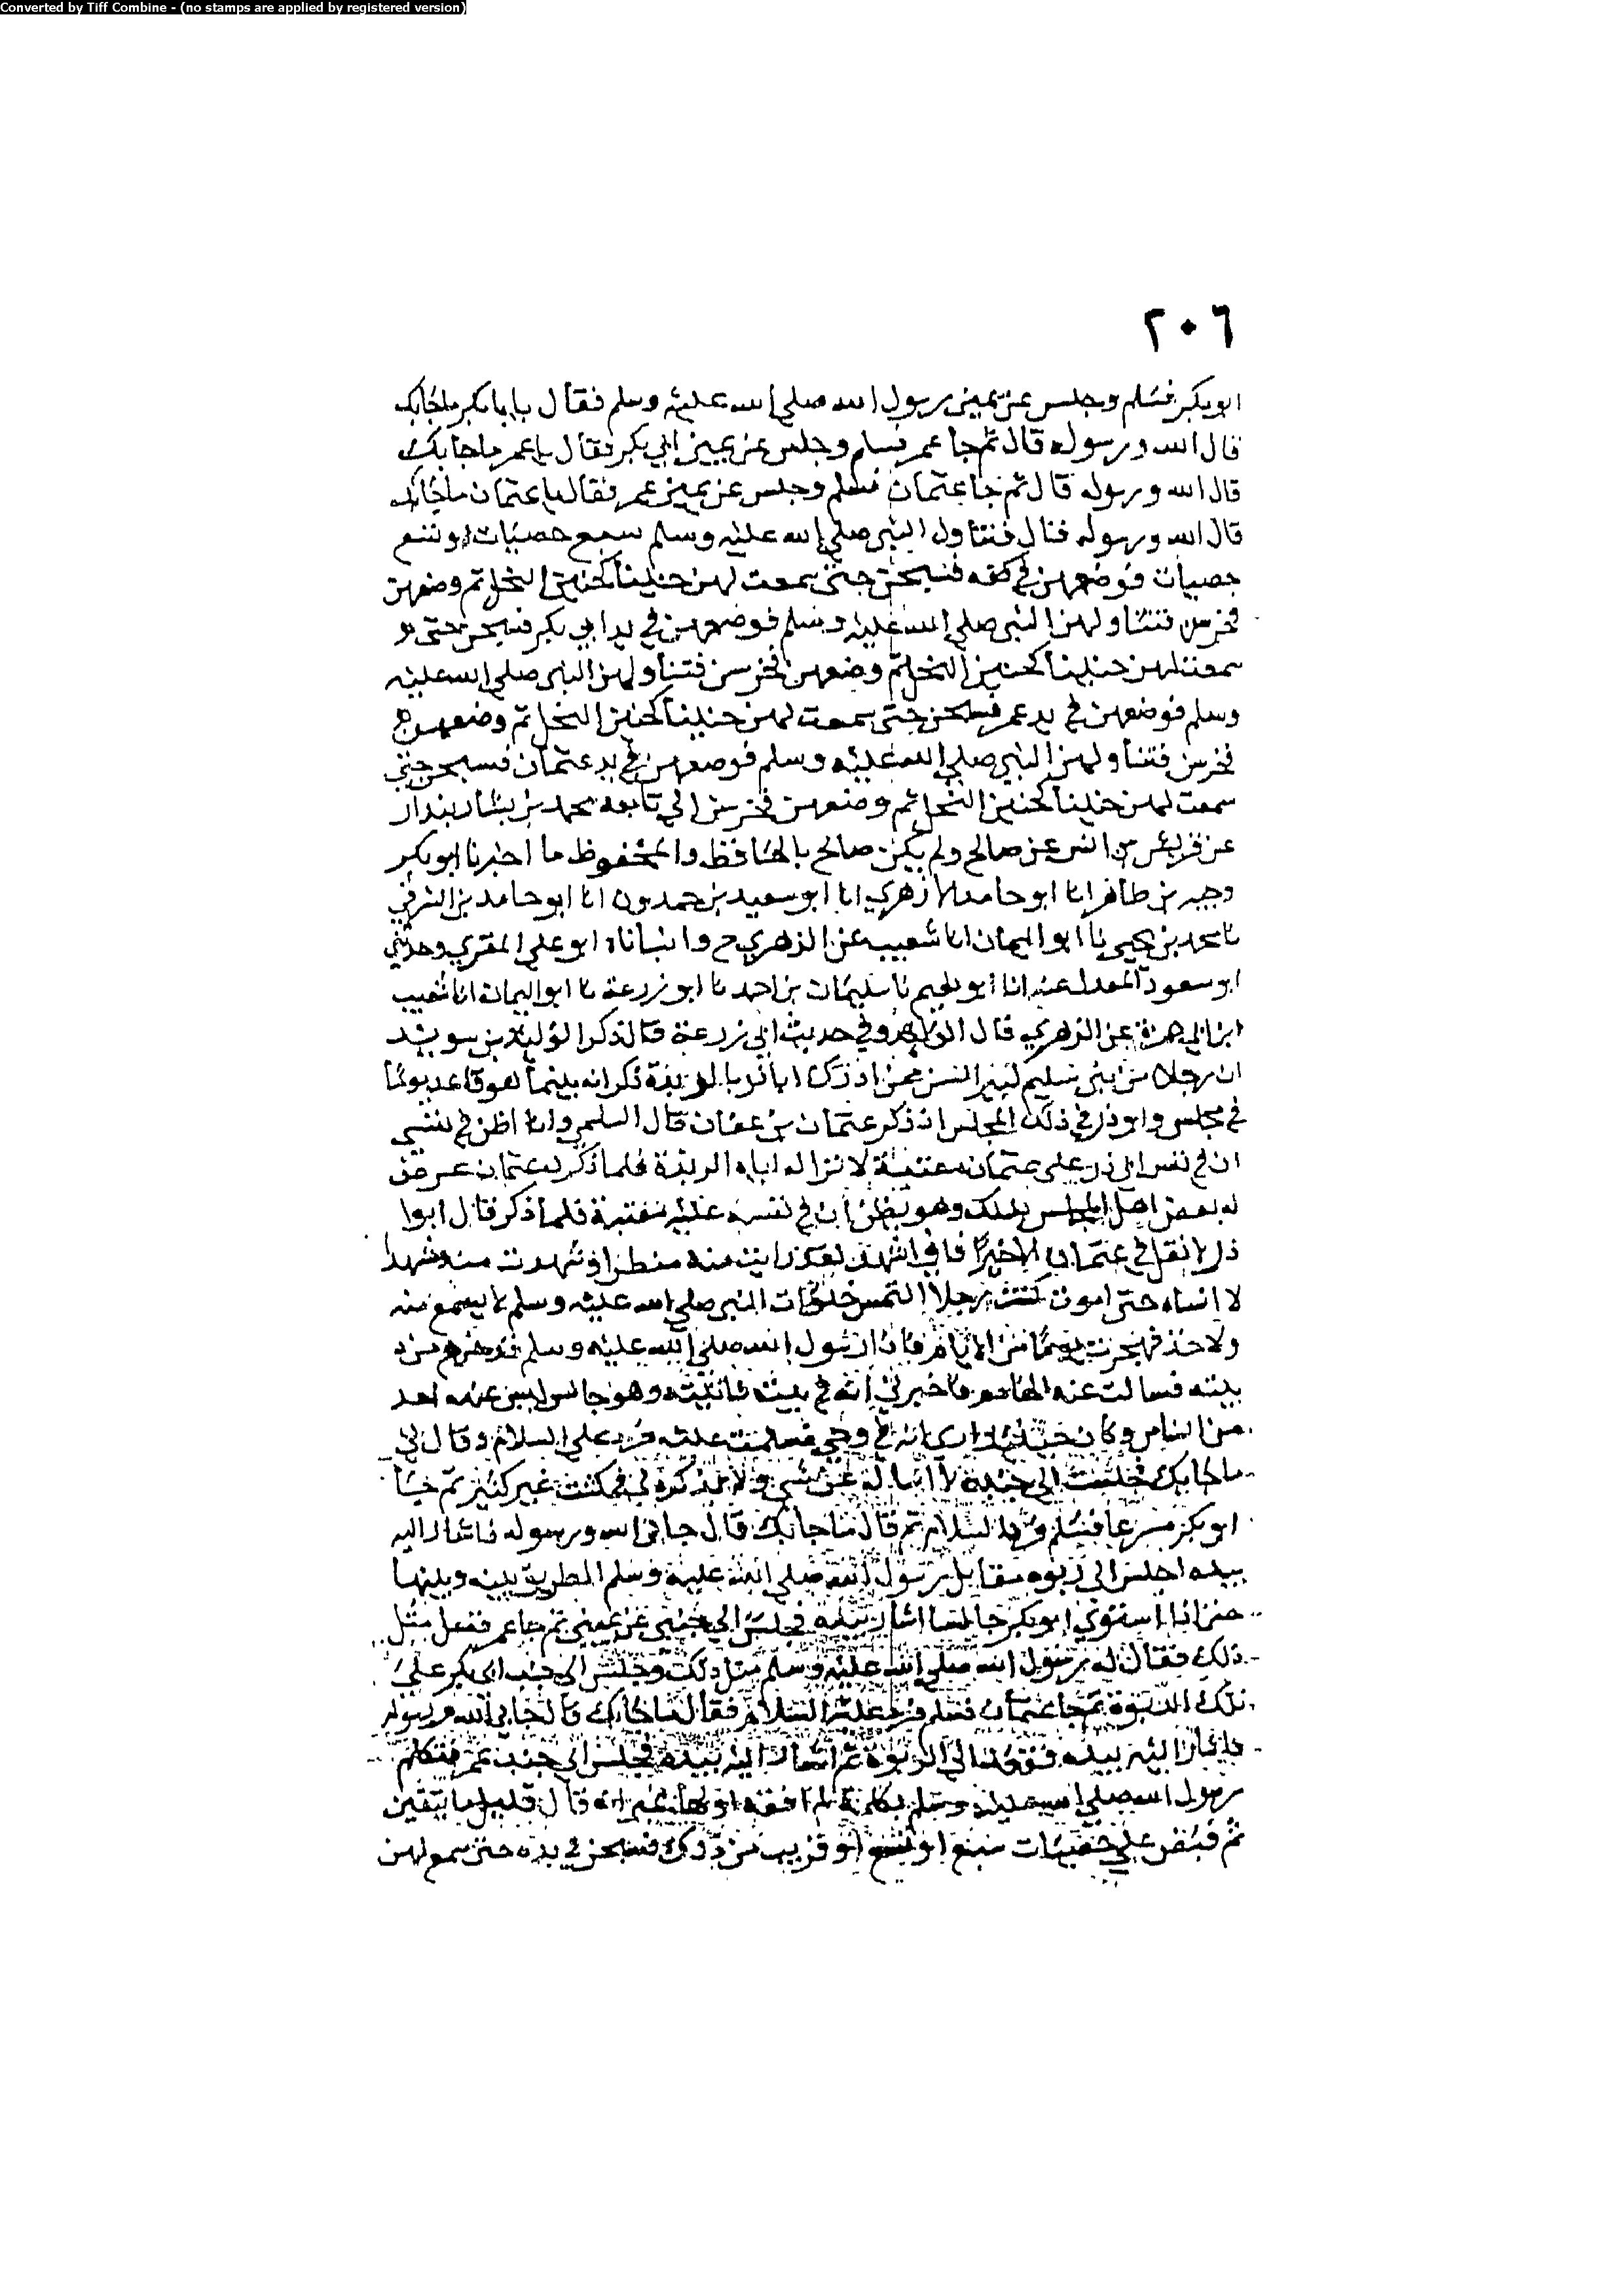 Converted by Tiff Combine - (no stamps are applied by registered version)
٢٠٦
ابو بكر فسلم وجلس عن يمين رسول الله صلى الله عليه وسلم فقال يا ابا بكر ما جا بك
قال الله ورسوله قال ثم جا عمر فسلم وجلس عن يمين ابي بكر فقال يا عمر ما جا بك
قال الله ورسوله قال ثم جا عثمان فسلم وجلس عن يمين عمر فقال يا عثمان ما جا بك
قال الله ورسوله قال فتناول النبي صلى الله عليه وسلم سبع حصيات او تسع
حصيات فوضعهن في كفه فسبحن حتى سمعت لهن حنينا كحنين النخل ثم وضعهن
فخرسن فتناولهن النبي صلى الله عليه وسلم فوضعهن في يد ابي بكر فسبحن حتى
سمعت لهن حنينا كحنين النخل ثم وضعهن فخرسن فتناولهن النبي صلى الله عليه
وسلم فوضعهن في يد عمر فسبحن حتى سمعت لهن حنينا كحنين النخل ثم وضعهن
فخرسن فتناولهن النبي صلى الله عليه وسلم فوضعهن في يد عثمان فسبحن حتى
سمعت لهن حنينا كحنين النخل ثم وضعهن فخرسن تابعه محمد بن بشار بندار
عن قريش بن انس عن صالح ولم يكن صالح بالحافظ والمحفوظ ما اخبرنا ابو بكر
وجيه بن طاهر انا ابو حامد الازهري انا ابو سعيد بن حمدون انا ابو حامد بن الشرقي
نا محمد بن يحيى نا ابو اليمان انا شعيب عن الزهري ح وانبأناه ابو علي المقري وحدثني
ابو سعود المعدل عنه انا ابو نعيم نا سليمان بن احمد نا ابو زرعة نا ابو اليمان انا شعيب
ابن ابي حمزة عن الزهري قال وفي حديث ابي زرعة قال ذكر الوليد بن سويد
ان رجلا من بني سليم كبير السن ممن ادرك ابا ذر بالربذة ذكر انه بينما هو قاعد يوما
في مجلس وابو ذر في ذلك المجلس اذ ذكر عثمان بن عفان قال السلمي وانا اظن في نفسي
ان في نفس ابي ذر على عثمان معتبة لانزاله اياه الربذة فلما ذكر له عثمان عرض
له بعض اهل المجلس بذلك وهو يظن ان في نفسه عليه معتبة فلما ذكر قال ابوا
ذر لا تقل في عثمان الا خيرا فاني اشهد لقد رايت منه منظرا وشهدت منه مشهدا
لا انساه حتى اموت كنت رجلا التمس خلوات النبي صلى الله عليه وسلم لاسمع منه
ولاخذ فهجرت يوما من الايام فاذا رسول الله صلى الله عليه وسلم قد خرج من
بيته فسالت عنه الخادم فاخبرني انه في بيت فاتيته وهو جالس ليس عنده احد
من الناس وكان حينئذ ارى انه في وحي فسلمت عليه فرد علي السلام وقال لي
ما جا بك فجلست الى جنبه لا اساله عن شي ولا يذكره لي فمكثت غير كثير ثم جا
ابو بكر مسرعا فسلم فرد السلام ثم قال ما جا بك قال جا بي الله ورسوله فاشار اليه
بيده اجلس الى ربوه مقابل رسول الله صلى الله عليه وسلم الطريق بينه وبينها
حتى اذا استوى ابو بكر جالسا اشار بيده فجلس الى جنبي عن يميني ثم جا عمر ففعل مثل
ذلك فقال له رسول الله صلى الله عليه وسلم مثل ذلك وجلس الى جنب ابي بكر على
تلك الربوة ثم جا عثمان فسلم فرد عليه السلام فقال ما جا بك قال جا بي الله ورسوله
فاشار اليه بيده فقعد الى الربوة ثم اشار اليه بيده فجلس الى جنب عمر فتكلم
رسول الله صلى الله عليه وسلم بكلمة لم افقه اولها غير انه قال قليل ما يبقين
ثم قبض على حصيات سبع او تسع او قريب من ذلك فسبحن في يده حتى سمع لهن